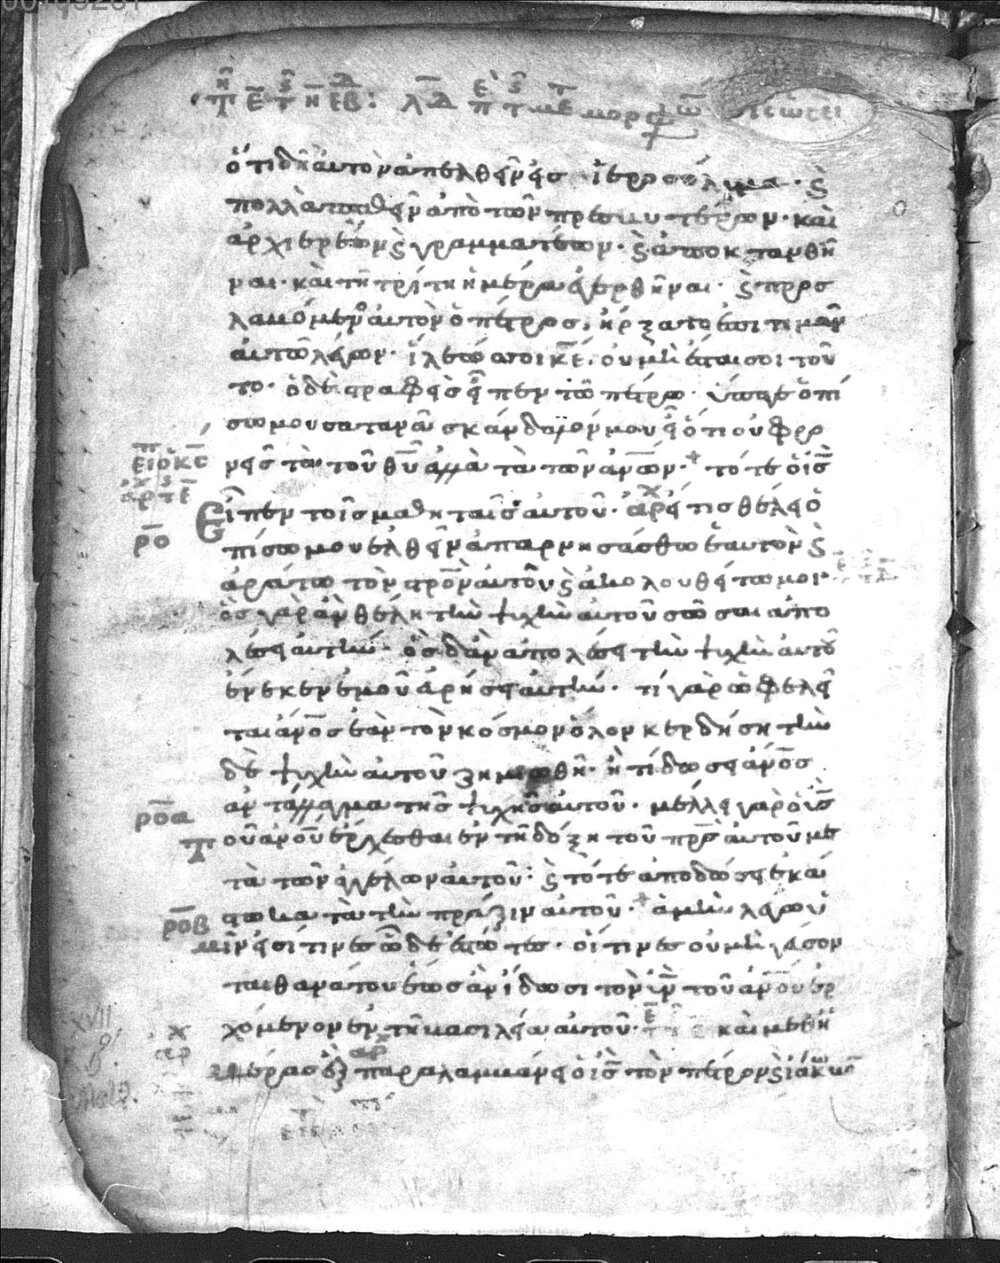 ὅτι δεῖ αὐτὸν ἀπελθεῖν εἰς ἱεροσόλυμα· ϗ
πολλὰ παθεῖν ἀπὸ τῶν πρεσβυτέρων· καὶ
ἀρχιερέων ϗ γραμματέων· ϗ ἀποκτανθῆ
ναι· καὶ τῆ τρίτη ἡμέρα ἐγερθῆναι· ϗ προσ
λαβόμενος αὐτὸν ὁ πέτρος, ἤρξατο ἐπιτιμᾶν
αὐτῶ λέγων· ἵλεώς σοι κε̅· οὐ μὴ ἔσται σοι τοῦ
το· ὁ δὲ στραφεὶς εἶπεν τῶ πέτρω· ὕπαγε ὀπί
σω μου σατανᾶ σκάνδαλόν μου εἶ ὅτι οὐ φρο
νεῖς τὰ τοῦ θυ̅ ἀλλὰ τὰ τῶν ἀνω̅ν· τότε ὁ ις̅
ρο̅
Εἶπεν τοῖς μαθηταῖς αὐτοῦ· εἴ τις θέλει ὀ
πίσω μου ἐλθεῖν ἀπαρνησάσθω ἑαυτὸν ϗ
ἀράτω τὸν σταυρὸν αὐτοῦ ϗ ἀκολουθείτω μοι·
ὃς γὰρ ἂν θέλη τὴν ψυχὴν αὐτοῦ σῶσαι ἀπο
λέσει αὐτήν· ὃς δ' ἂν ἀπολέσει τὴν ψυχὴν αὐτοῦ
ἕνεκεν ἐμοῦ εὑρήσει αὐτήν· τί γὰρ ὠφελεῖ
ται ανο̅ς ἐὰν τὸν κόσμον ὅλον κερδήση τὴν
δὲ ψυχὴν αὐτοῦ ζημιωθῆ· ἢ τί δώσει ανο̅ς
ἀντάλλαγμα τῆς ψυχῆς αὐτοῦ· μέλλει γὰρ ὁ υς̅
ροα̅
τοῦ ανο̅υ ἔρχεσθαι ἐν τῆ δόξη τοῦ πρς̅ αὐτοῦ με
τὰ τῶν ἀγγέλων αὐτοῦ· ϗ τότε ἀποδώσει ἑκά
στω κατὰ τὴν πρᾶξιν αὐτοῦ· ἀμὴν λέγω ὑ
ροβ̅
μῖν εἰσί τινες ὧδε ἑστῶτες· οἵτινες οὐ μὴ γεύσον
ται θανάτου ἕως ἂν ἴδωσι τὸν υν̅ τοῦ ανο̅υ ἐρ
χόμενον ἐν τῆ βασιλεία αὐτοῦ· καὶ μεθ' ἡ
μέρας ἓξ παραλαμβάνει ὁ ις̅ τὸν πέτρον ϗ ἰάκωβ